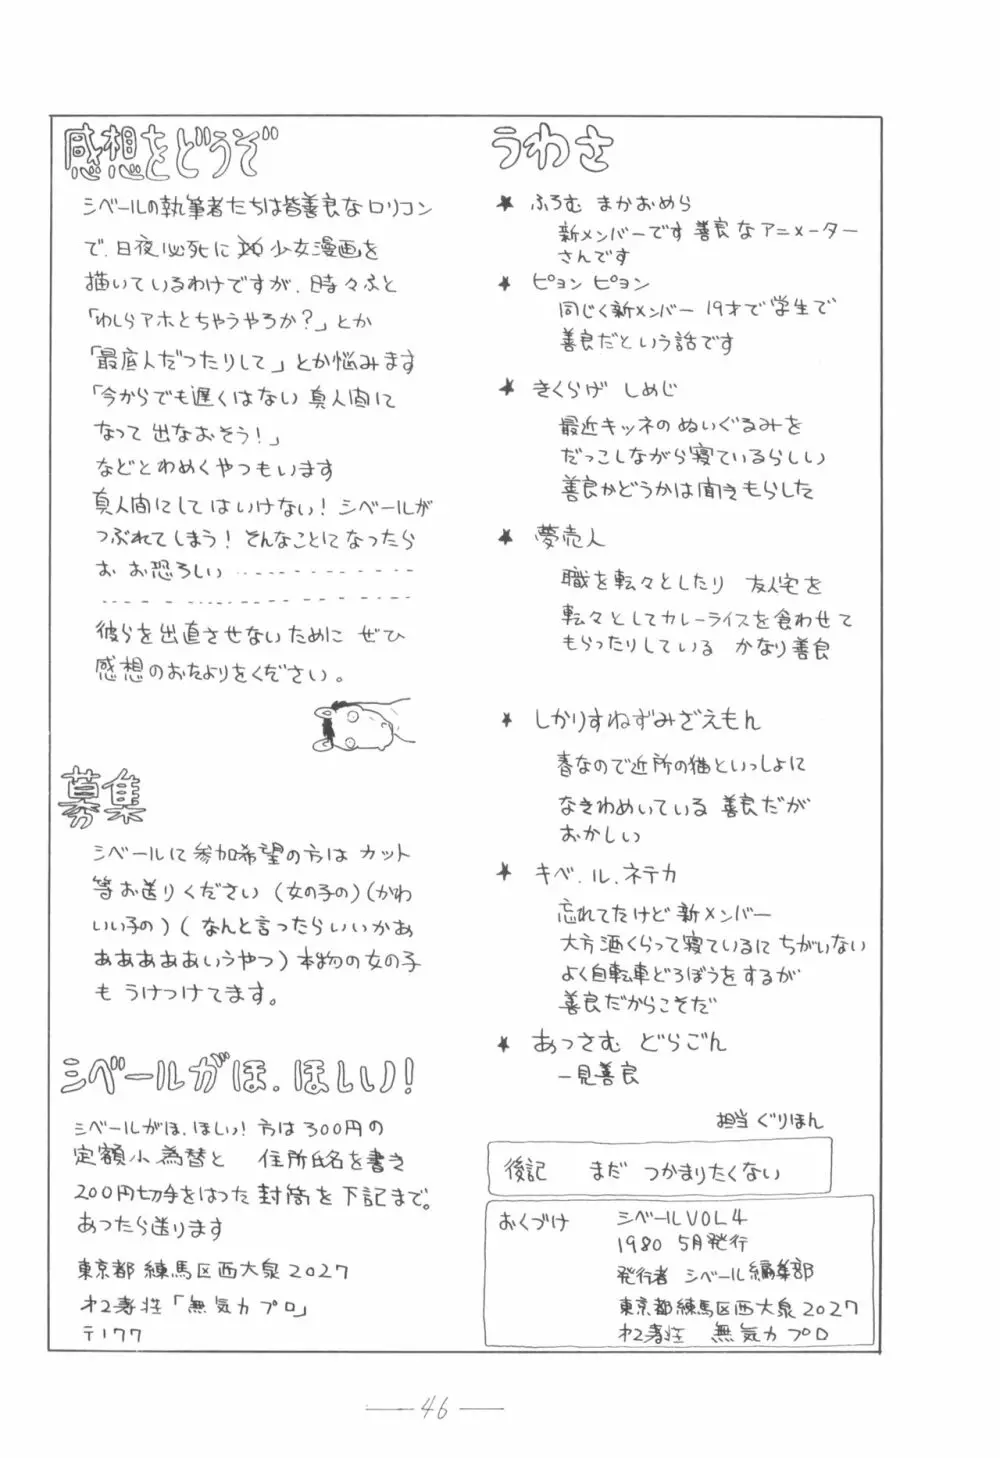 感想をどうぞ
シベールの執筆者たちは皆善良なロリコン
で、日夜必死に 少女漫画を
描いているわけですが、時々ふと
「わしらアホとちゃうやろか?」とか
「最底人だったりして」とか悩みます
「今からでも遅くはない 真人間に
なって 出なおそう!」
などとわめくやつもいます
真人間にしてはいけない! シベールが
つぶれてしまう! そんなことになったら
お お恐ろしい ‥‥‥‥‥‥
‥‥‥‥‥‥‥‥‥‥
彼らを出直させないために ぜひ
感想のおたよりをください。
募集
シベールに参加希望の方は カット
等お送りください (女の子の)(かわ
いい子の)(なんと言ったらいいかあ
あああああいうやつ)本物の女の子
も うけつけてます。
シベールがほ、ほしい!
シベールがほ、ほしい! 方は 300円の
定額小為替と 住所氏名を書き
200円切手をはった封筒を下記まで。
あったら送ります
東京都練馬区西大泉2027
才2寿荘「無気力プロ」
〒177
うわさ
★ ふろむ まかおめら
新メンバーです 善良なアニメーター
さんです
★ ピョン ピョン
同じく新メンバー 19才で学生で
善良だという話です
★ きくらげ しめじ
最近キツネのぬいぐるみを
だっこしながら寝ているらしい
善良かどうかは聞きもらした
★ 夢売人
職を転々としたり 友人宅を
転々としてカレーライスを食わせて
もらったりしている かなり善良
★ しかりすねずみざえもん
春なので近所の猫といっしょに
なきわめいている 善良だが
おかしい
★ キベ.ル.ネテカ
忘れてたけど 新メンバー
大方酒くらって寝ているにちがいない
よく自転車どろぼうをするが
善良だからこそだ
★ あっさむ どらごん
一見善良
担当 ぐりほん
後記 まだ つかまりたくない
おくづけ シベールVOL4
1980 5月発行
発行者 シベール編集部
東京都練馬区西大泉2027
才2寿荘 無気力プロ
— 46 —